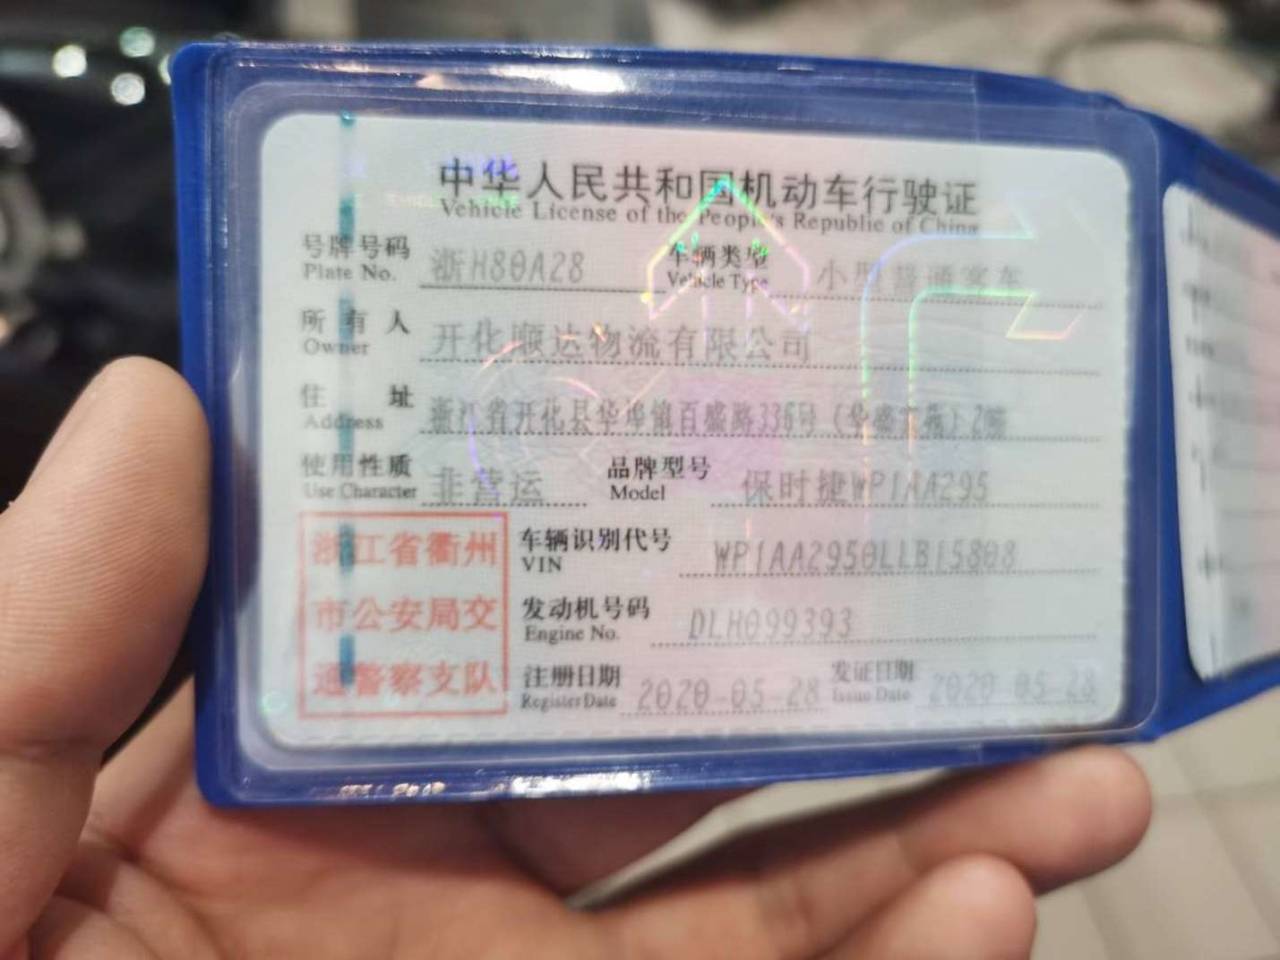 中华人民共和国机动车行驶证
Vehicle License of the People's Republic of China
号牌号码 浙H80A28 车辆类型 小型普通客车
Plate No. Vehicle Type
所有人 开化顺达物流有限公司
Owner
住址 浙江省开化县华埠镇百盛路336号(华盛)2幢
Address
使用性质 非营运 品牌型号 保时捷WP1AA295
Use Character Model
浙江省衢州
市公安局交
通警察支队
车辆识别代号 WP1AA2950LLB15808
VIN
发动机号码 DLH099393
Engine No.
注册日期 2020-05-28 发证日期 2020-05-28
Register Date Issue Date